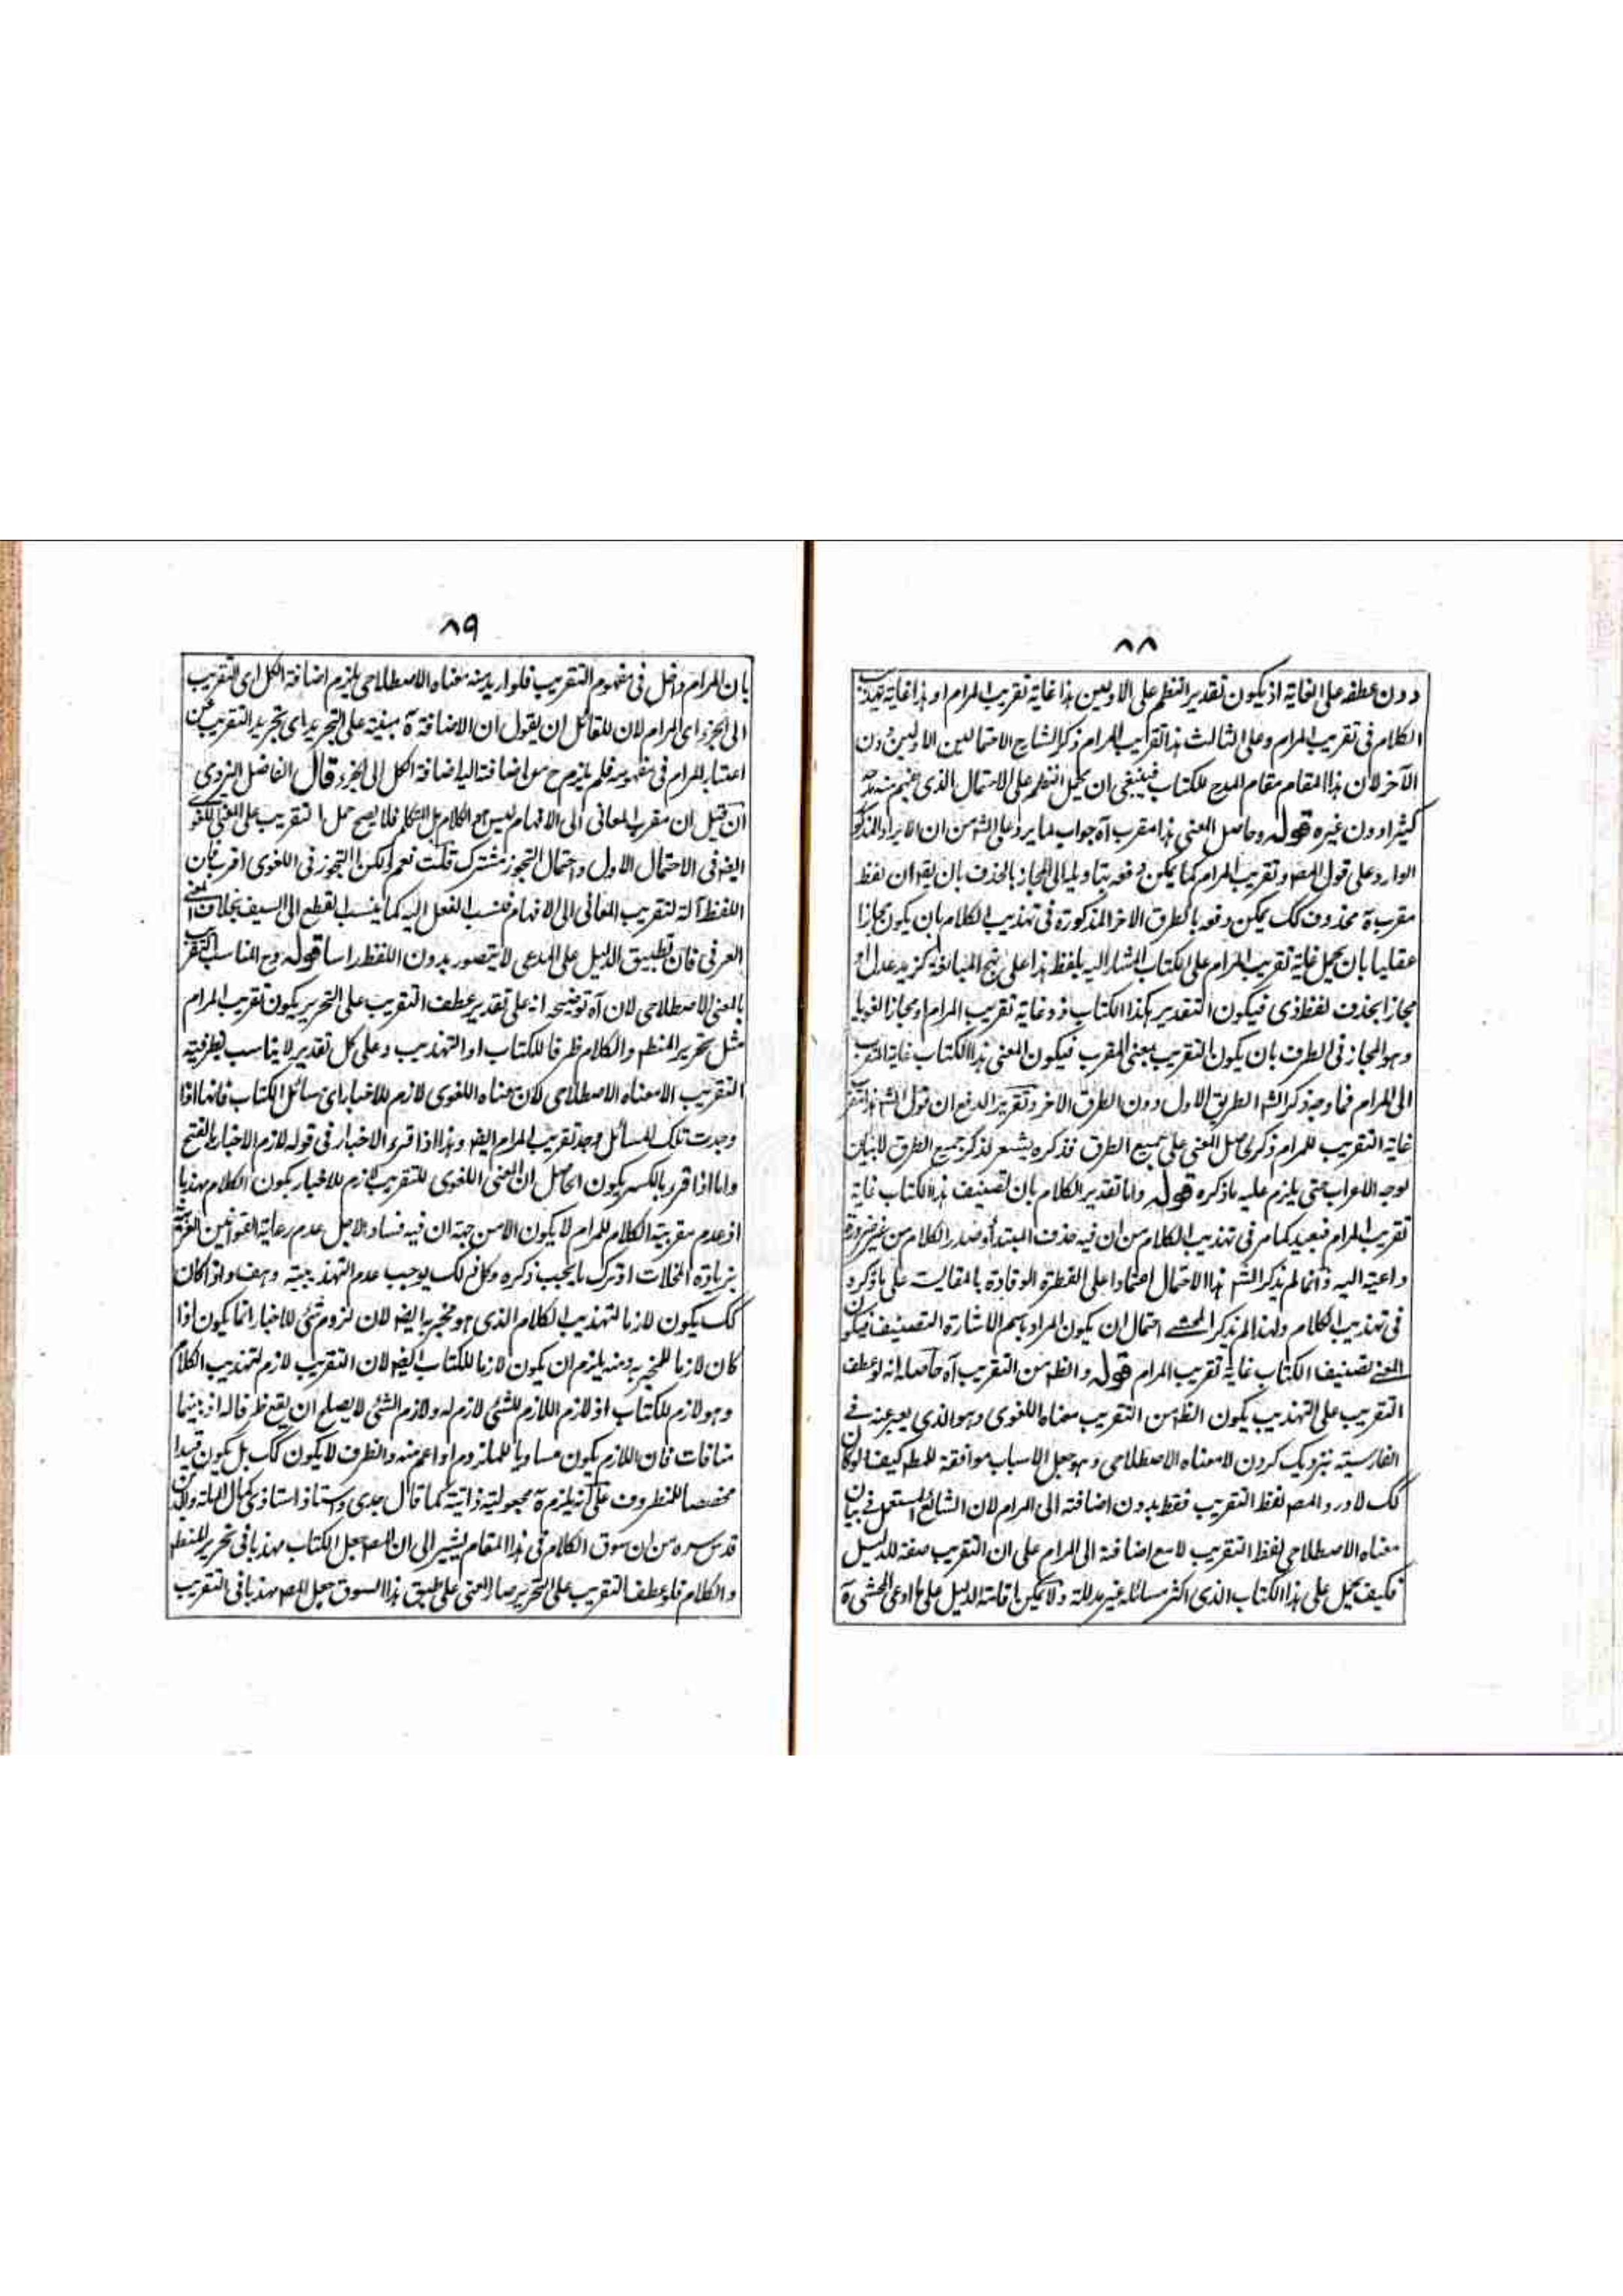 ٨٨
دون عطفه على الغاية اذ يكون تقدير النظم على الاولين هذا غاية تقريب المرام او هذا غاية تهذيب
الكلام فى تقريب المرام وعلى الثالث هذا تقريب المرام ذكر الشارح الاحتمالين الاولين دون
الآخر لان هذا المقام مقام المدح للكتاب فينبغى ان يحمل النظم على الاحتمال الذى يفهم منه مدحه
كثيرا دون غيره قوله وحاصل المعنى هذا مقرب آه جواب لما يرد على الشه من ان الايراد المذكور
الوارد على قول المصه وتقريب المرام كما يمكن دفعه بتاويله الى المجاز بالحذف بان يقه ان لفظ
مقرب آه محذوف كك يمكن دفعه بالطرق الاخر المذكورة فى تهذيب الكلام بان يكون مجازا
عقليا بان يحمل غاية تقريب المرام على الكتاب المشار اليه بلفظ هذا على نهج المبالغة كزيد عدل او
مجازا بحذف لفظ ذى فيكون التقدير هكذا الكتاب ذو غاية تقريب المرام او مجازا لغويا
وهو المجاز فى الطرف بان يكون التقريب بمعنى المقرب فيكون المعنى هذا الكتاب غاية المقرب
الى المرام فما وجه ذكر الشه الطريق الاول دون الطرق الاخر وتقرير الدفع ان قول الشه هذا مقرب
غاية التقريب للمرام ذكر لحاصل المعنى على جميع الطرق فذكره يشعر لذكر جميع الطرق لا بيان
لوجه الاعراب حتى يلزم عليه ما ذكره قوله واما تقدير الكلام بان تصنيف هذا الكتاب غاية
تقريب المرام فبعيد كما مر فى تهذيب الكلام من ان فيه حذف المبتدأ وصدر الكلام من غير ضرورة
داعية اليه وانما لم يذكر الشه هذا الاحتمال اعتمادا على الفطرة الوقادة بالمقايسة على ما ذكره
فى تهذيب الكلام ولهذا لم يذكر المحشى احتمال ان يكون المراد باسم الاشارة التصنيف فيكون
المعنى تصنيف الكتاب غاية تقريب المرام قوله والظه من التقريب آه حاصله انه لو عطف
التقريب على التهذيب يكون الظه من التقريب معناه اللغوى وهو الذى يعبر عنه فى
الفارسية بنزديك كردن لا معناه الاصطلاحى وهو جعل الاسباب موافقة للمطه كيف لو كان
كك لاورد المصه لفظ التقريب فقط بدون اضافته الى المرام لان الشائع المستعمل فى بيان
معناه الاصطلاحى لفظ التقريب لا مع اضافته الى المرام على ان التقريب صفة للدليل
فكيف يحمل على هذا الكتاب الذى اكثر مسائله غير مدللة ولا يمكن اقامة الدليل على ما ادعى المحشى آه
٨٩
بان المرام داخل فى مفهوم التقريب فلو اريد منه معناه الاصطلاحى يلزم اضافة الكل اى التقريب
الى الجزء اى المرام لان للقائل ان يقول ان الاضافة آه مبنية على التجريد اى تجريد التقريب عن
اعتبار المرام فى مفهومه فلم يلزم ح من اضافته اليه اضافة الكل الى الجزء قال الفاضل اليزدى
ان قيل ان مقرب المعانى الى الافهام ليس هو الكلام بل المتكلم فلا يصح حمل التقريب على المعنى اللغوى
ايضه فى الاحتمال الاول واحتمال التجوز مشترك قلت نعم ولكن التجوز فى اللغوى اقرب فان
اللفظ آلة لتقريب المعانى الى الافهام فنسب الفعل اليه كما ينسب القطع الى السيف بخلاف المعنى
العرفى فان تطبيق الدليل على المدعى لا يتصور بدون اللفظ راسا قوله وح المناسب التقريب
بالمعنى الاصطلاحى لان آه توضيحه انه على تقدير عطف التقريب على التحرير يكون تقريب المرام
مثل تحرير المنطه والكلام ظرفا للكتاب او التهذيب وعلى كل تقدير لا يناسب بظرفيته
التقريب الا معناه الاصطلاحى لان معناه اللغوى لازم للاخبار اى مسائل الكتاب فانها اذا
وجدت تلك المسائل وجد تقريب المرام ايضه وهذا اذا قرء الاخبار فى قوله لازم الاخبار بالفتح
واما اذا قرء بالكسر يكون الحاصل ان المعنى اللغوى للتقريب لازم للاخبار بكون الكلام مهذبا
اذ عدم مقربية الكلام للمرام لا يكون الا من جهة ان فيه فساد الاجل عدم رعاية القوانين العربية
بزيادة المخلات او ترك ما يجب ذكره وكل ذلك يوجب عدم التهذيبية وهف واذا كان
كك يكون لازما لتهذيب الكلام الذى هو مخبر به ايضه لان لزوم شئ للاخبار انما يكون اذا
كان لازما للمخبر به ومنه يلزم ان يكون لازما للكتاب ايضه لان التقريب لازم لتهذيب الكلام
وهو لازم للكتاب اذ لازم اللازم للشئ لازم له ولازم الشئ لا يصلح ان يقع ظرفا له اذ بينهما
منافات فان اللازم يكون مساويا للملزوم او اعم منه والظرف لا يكون كك بل يكون قيدا
مخصصا للمظروف على انه يلزم آه مجعولية ذاتية كما قال جدى واستاذ استاذى كمال الملة والدين
قدس سره من ان سوق الكلام فى هذا المقام يشير الى ان المصه جعل الكتاب مهذبا فى تحرير المنطه
والكلام فلو عطف التقريب على التحرير صار المعنى على طبق هذا السوق جعل المصه مهذبا فى التقريب